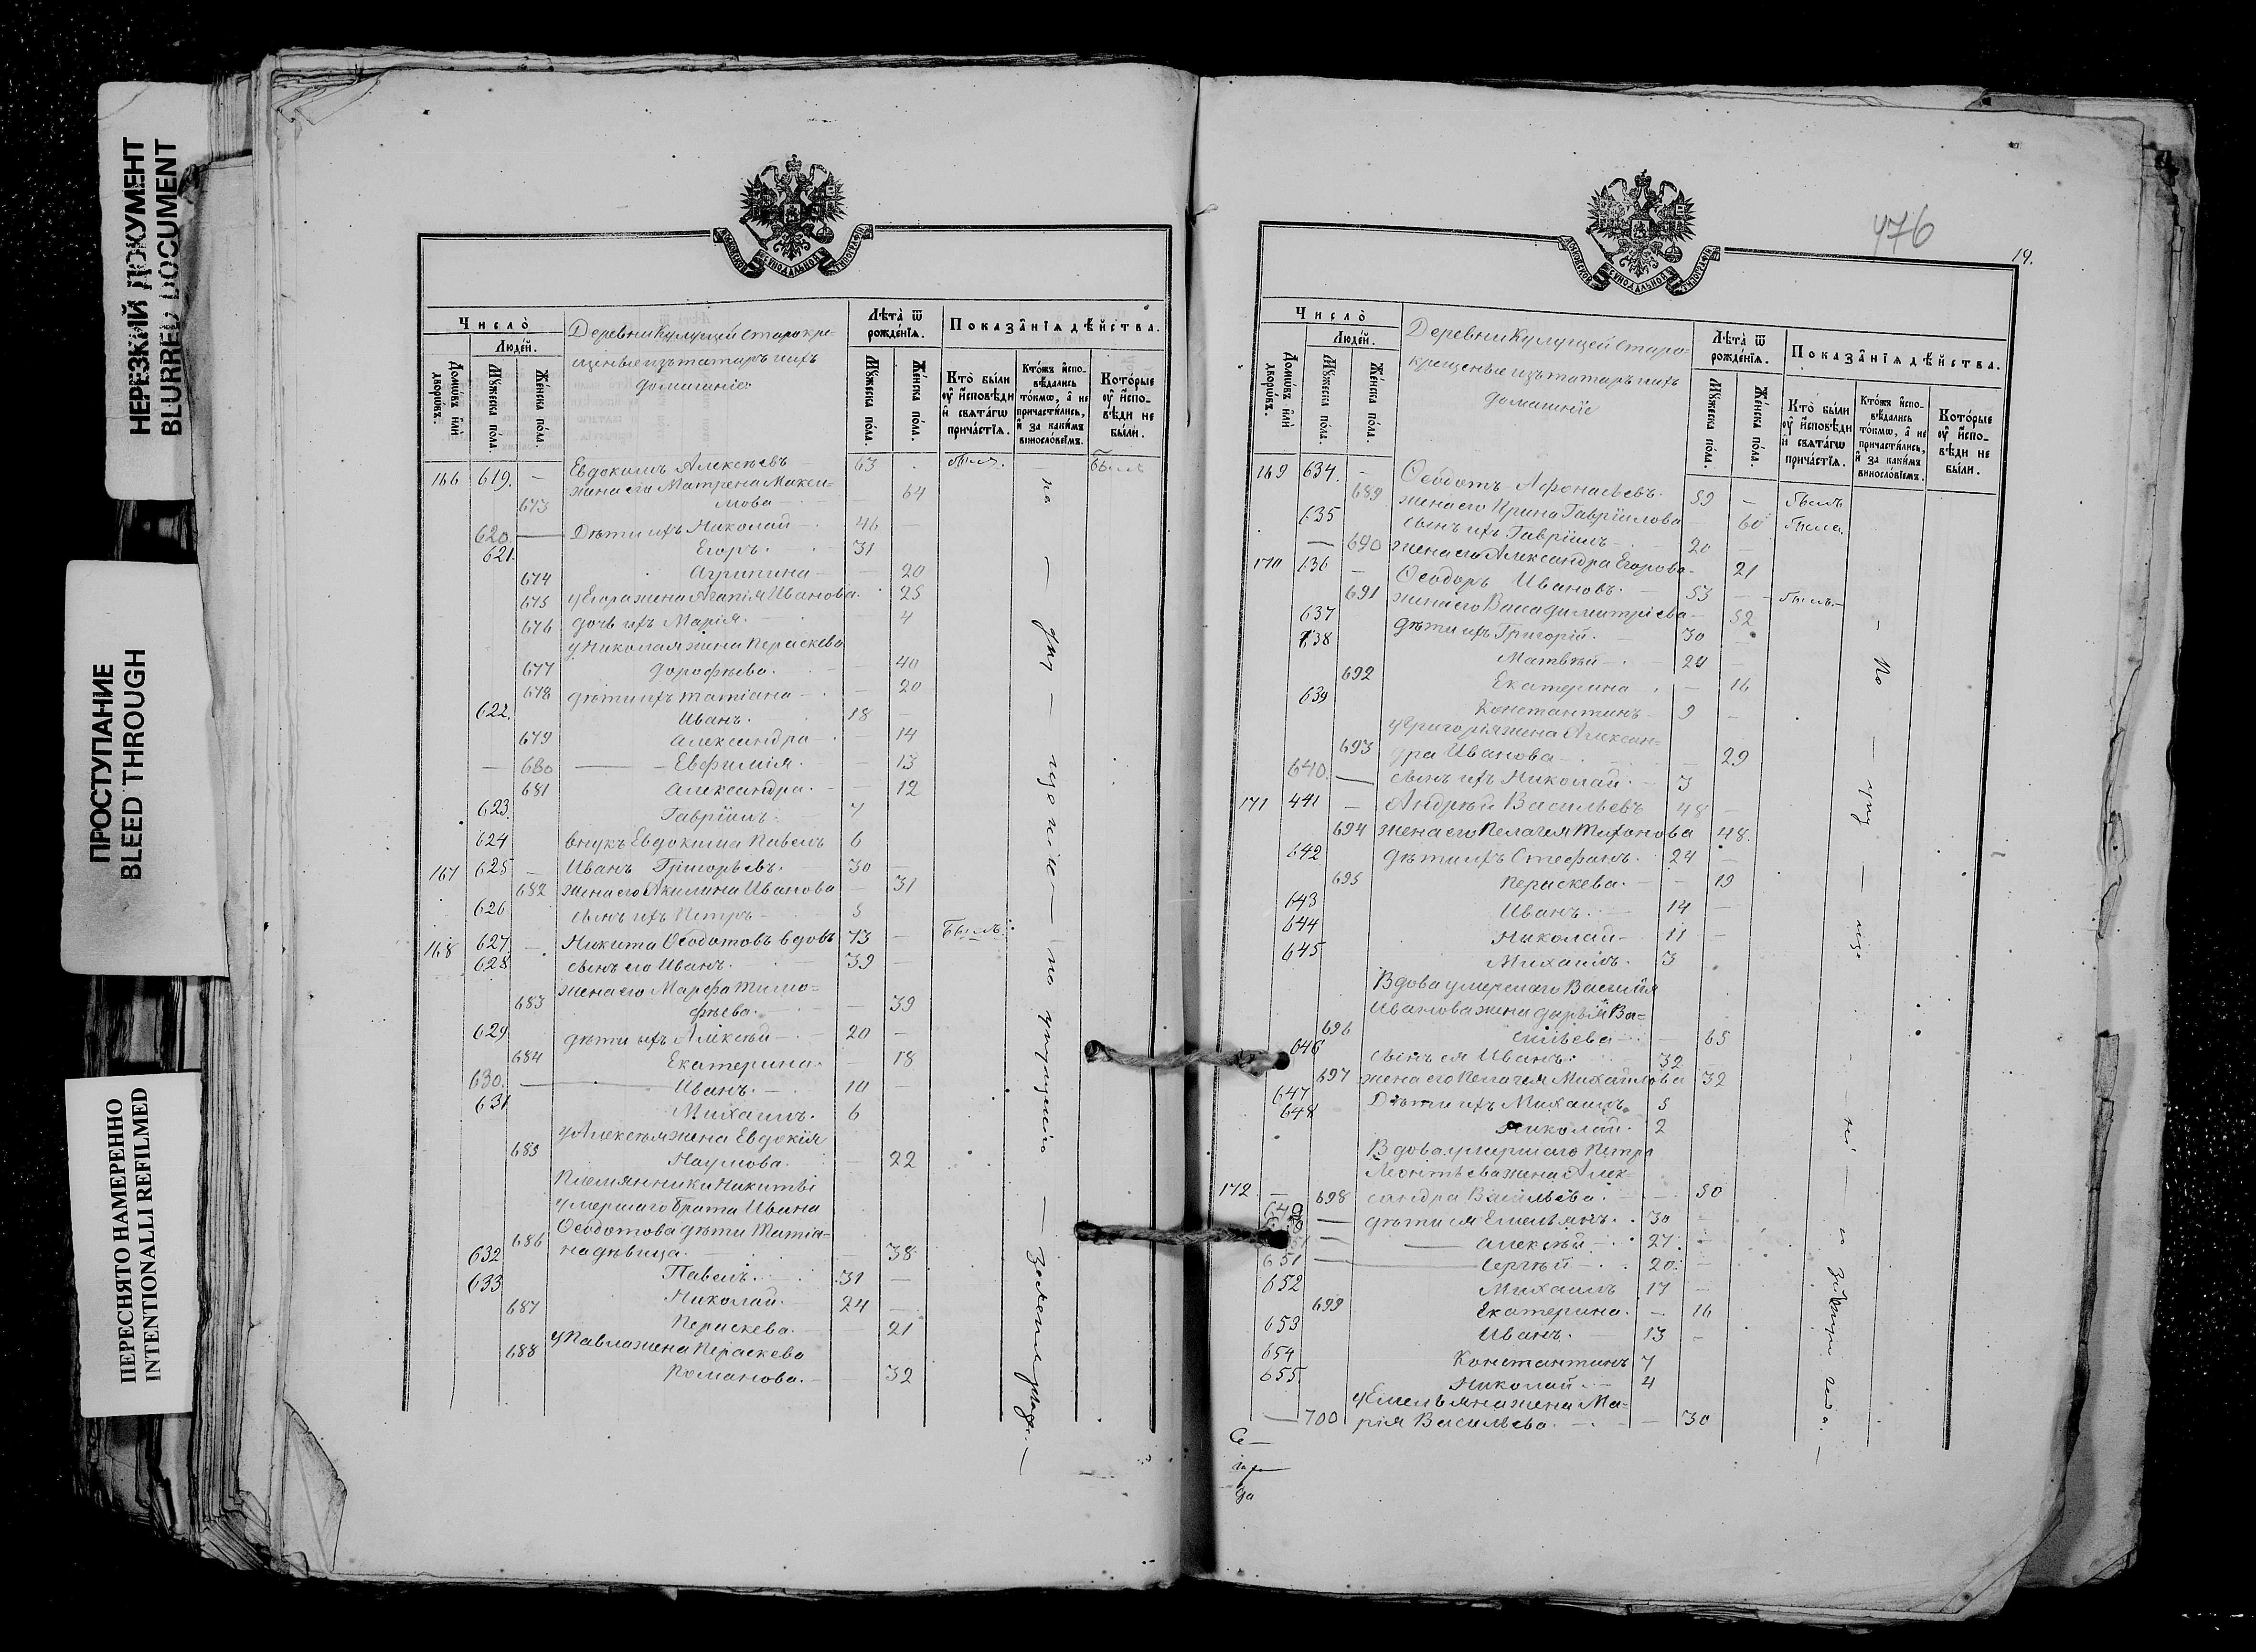 НЕРЕЗКИЙ ДОКУМЕНТ
BLURRED DOCUMENT
ПРОСТУПАНИЕ
BLEED THROUGH
ПЕРЕСНЯТО НАМЕРЕННО
INTENTIONALLI REFILMED
МОСКОВСКОЙ СѴНОДАЛЬНОЙ ТИПОГРАФІИ
Число̀
Людéй.
Домѡ́въ и҆лѝ дворѡ́въ.
Мꙋ́жеска по́ла.
Же́нска по́ла.
Деревни Кулущей старокре-
щеные изъ татаръ и ихъ
домашніе
Лѣ́та ѿ рожде́нїѧ.
Мꙋ́жеска по́ла.
Же́нска по́ла.
Показа̑нїѧ дѣ́йства.
Кто̀ бы́ли ᲂу҆ и҆сповѣ́ди и҆ свѧта́гѡ прича́стїѧ.
Кто́жъ и҆спо-вѣ́дались то́кмѡ, а҆ не причасти́лись, и҆ за каки́мъ винослові́емъ.
Кото́рые ᲂу҆ и҆спо-вѣ́ди не бы́ли.
166 619. — Евдокимъ Алексѣевъ 63 былъ.
673 жена его Матрена Макси-
мова — 64
620. — Дѣти ихъ Николай — 46
621. Егоръ. 31
674 Агрипина — 20
675 у Егора жена Агапія Иванова. 25
676 дочь ихъ Марія. 4
у Николая жена Пераскева
677 Дорофѣева. 40
678 дѣти ихъ Татіана — 20
622. Иванъ. 18 —
679 Александра — 14
— 680 — Евфимія. — 13
681 Александра. — 12
623. Гавріилъ. 7
624 внукъ Евдокима Павелъ 6
167 625 — Иванъ Григорьевъ. 30 —
682 жена его Акилина Иванова — 31
626 сынъ ихъ Петръ — 5
168 627 — Никита Ѳеодотовъ вдовъ 73 — Былъ.
628 сынъ его Иванъ. 39 —
жена его Марѳа Тимо-
683 фѣева. — 39
629 дѣти ихъ Алексѣй — 20 —
684 Екатерина. — 18
630. — Иванъ. 10 —
631 Михаилъ. 6
у Алексѣя жена Евдокія
685 Наумова. 22
Племянники Никиты
умершаго брата Ивана
Ѳеодотова дѣти Татіа-
686 на дѣвица. 38
632 Павелъ. 31 —
633 Николай. 24 —
687 Пераскева. 21
688 у Павла жена Пераскева
Романова. — 32
476
19.
МОСКОВСКОЙ СѴНОДАЛЬНОЙ ТИПОГРАФІИ
Число̀
Людéй.
Домѡ́въ и҆лѝ дворѡ́въ.
Мꙋ́жеска по́ла.
Же́нска по́ла.
Деревни Кулущей старо-
крещеные изъ татаръ и ихъ
домашніе
Лѣ́та ѿ рожде́нїѧ.
Мꙋ́жеска по́ла.
Же́нска по́ла.
Показа̑нїѧ дѣ́йства.
Кто̀ бы́ли ᲂу҆ и҆сповѣ́ди и҆ свѧта́гѡ прича́стїѧ.
Кто́жъ и҆спо-вѣ́дались то́кмѡ, а҆ не причасти́лись, и҆ за каки́мъ винослові́емъ.
Кото́рые ᲂу҆ и҆спо-вѣ́ди не бы́ли.
169 634. — Ѳеодотъ Афонасьевъ. 59 — былъ
689 жена его Ирина Гавріилова 60 была.
635 сынъ ихъ Гавріилъ — 20 —
— 690 жена его Александра Егорова — 21
170 636 — Ѳеодоръ Ивановъ. 53 — былъ —
691 жена его Васа Димитріева — 52
637 дѣти ихъ Григорій. 30
638 Матвѣй — 24 —
692 Екатерина. — 16
639 Константинъ 9 —
у Григорія жена Алексан-
693 дра Иванова — 29
640. — сынъ ихъ Николай. 3
171 441 — Андрей Васильевъ 48 —
694 жена его Пелагея Тихонова 48.
642 дѣти ихъ Стефанъ. 24 —
695 Пераскева. — 19
643 Иванъ. 14 —
644 Николай — 11 —
645 Михаилъ. 3
Вдова умершаго Василія
Иванова жена Дарья Ва-
696 сильева — 65
646 сынъ ея Иванъ. 32
697 жена его Пелагея Михайлова 32
647 Дѣти ихъ Михаилъ 5
648 Николай. 2
Вдова умершаго Петра
Леонтьева жена Алек-
172 — 698 сандра Васильева. — 50
649 — дѣти ея Емельянъ. 30 —
— Алексѣй — 27. —
651 — Сергѣй — 20. —
652 Михаилъ 17 —
699 Екатерина. — 16
653 Иванъ. 13 —
654 Константинъ 7
655 Николай. — 4
у Емельяна жена Ма-
— 700 рія Васильева. — 30